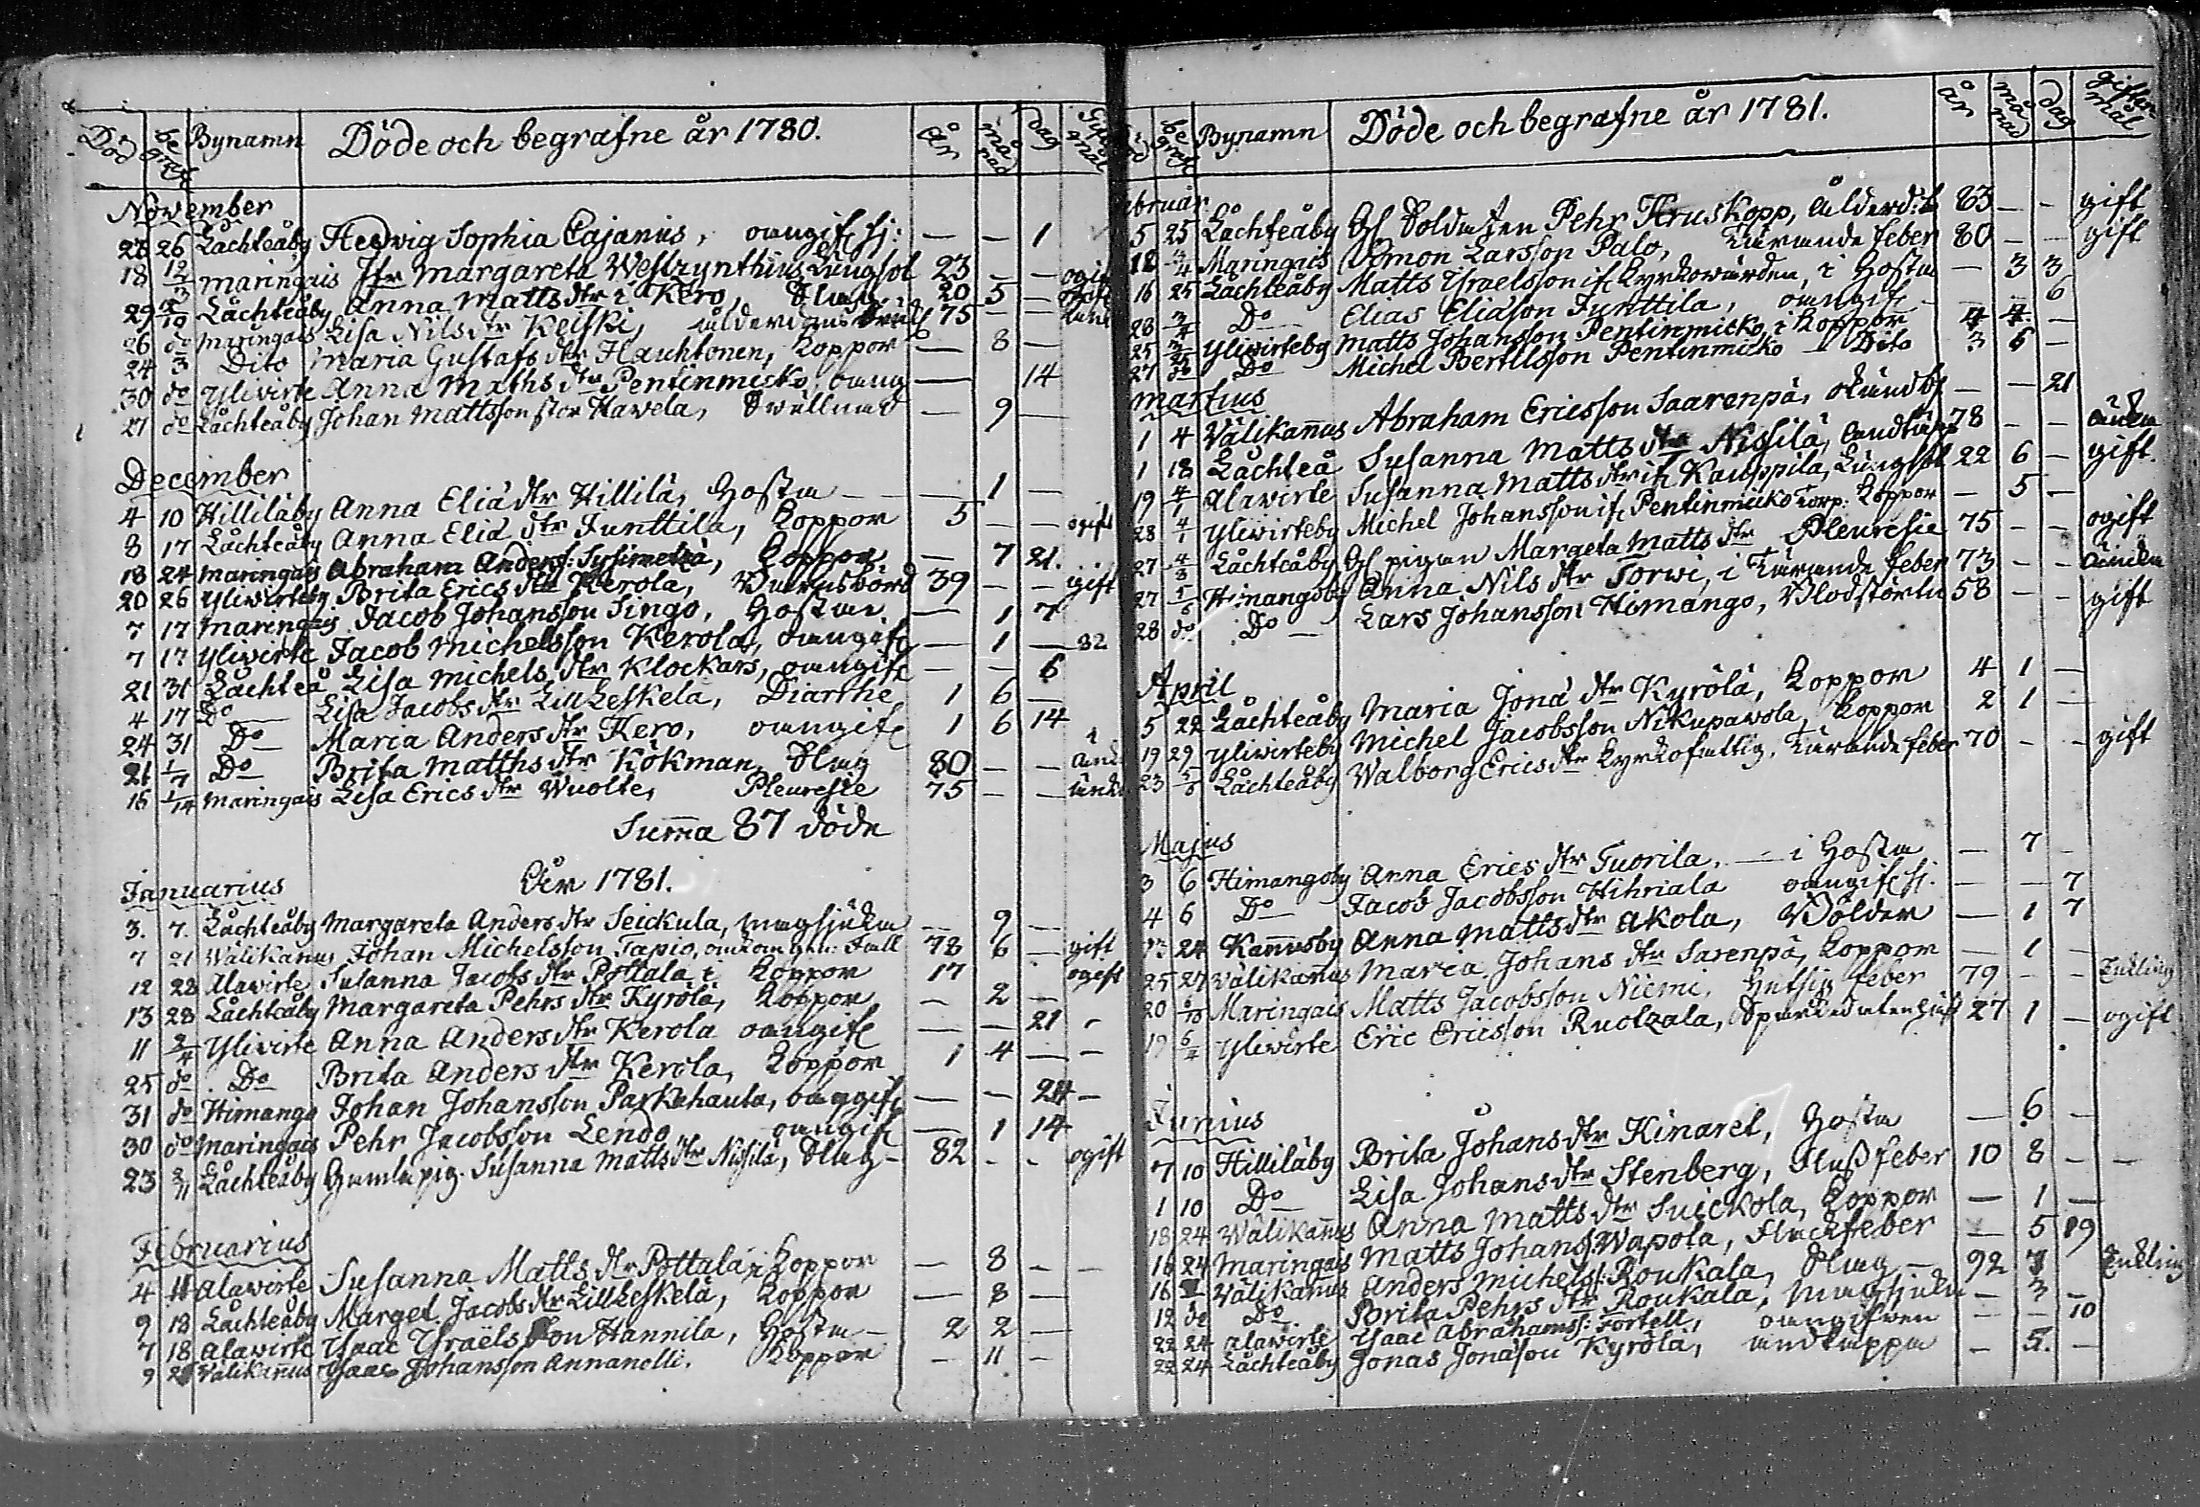 Död be graf Bynamn Döde och begrafne år 1780. år må nad dag
November
26 Låchteåby Hedwig Sophia Cajanus, oangifh sj: — — 1
18 maringais Jfr Margareta Westzynthius Lungsot 23 — — ogift
29 Låchteåby Anna Matts dtr i Kero, Slag 20 5 —
26 do maringais Lisa Nils dtr Keiski, ålderdoms 75 — —
24 3 Dito Maria Gustafs dtr Hauhtonen, Koppor — 8 —
30 do Ylivirte Anna Maths dtr Pentinmicko, oang — 14
27 do Låchteåby Johan Mattsson stor Hawela, Swullnad — 9 —
December
4 10 Hillilåby Anna Eliæ dtr Hillilä, Hosta — 1 —
8 17 Låchteåby Anna Eliæ dtr Junttila, Koppor 5 — — ogift
18 24 maringais Abraham Anders: Sysimetsä, Koppor — 7 21.
20 26 Ylivirteby Brita Erics dtr Kerola, 39 — — gift
7 17 maringais Jacob Johansson Singo, Hosta — 1 7
7 17 Ylivirte Jacob Michelsson Kerola, oangifh — 1 — 32
21 31 Låchteå Lisa Michels dtr Klockars, oangifh — — 6
4 17 Do Lisa Jacobs dtr Lill Leskelä, Diarrhe 1 6 —
24 31 Do Maria Anders dtr Kero, oangifh 1 6 14
21 1/7 Do Brita Matths dtr Kökman, Slag 80 — —
15 1/14 maringais Lisa Erics dtr Wuolte, Pleuresie 75 — —
Summa 87 döde
Januarius År 1781.
3. 7. Låchteåby Margareta Anders dtr Seickula, magsjukan — 9 —
7 21 Wälikanus Johan Michelsson Tapio, omkom gen: Fall 78 6 — gift
12 28 Alawirte Susanna Jacobs dtr Pottala i Koppor 17 ogift
13 28 Låchteåby Margareta Pehrs dtr Kyrölä, Koppor — 2 —
11 2/4 Ylivirte Anna Anders dtr Kerola oangifh — — 21 -
25 do Do Brita Anders dtr Kerola, Koppor 1 4 — —
31 do Himango Johan Johansson Parkahauta, oangifh — — 24 —
30 do maringais Pehr Jacobsson Lendo oangifh — 1 14
23 2/11 Låchteåby Gamla pig. Susanna Matts dtr Nissilä, Slag - 82 - - ogift
Februarius
4 11 Alawirte Susanna Matts dtr Pottala, i Koppor — 8 - -
9 18 Låchteåby Marget. Jacobs dtr Lill Leskelä, Koppor — 8 —
7 18 Alawirte Ysaac Ysraëls Son Hannila, Hosta — 2 2 —
9 Wälikanus Ysaac Johansson Annanolli. Koppor — 11 —
be graf Bynamn Döde och begrafne år 1781. år må nad dag giftermål
5 25 Låchteåby Gl Soldaten Pehr Kruskopp, ålderd: 83 — — gift
18 Maringais Simon Larsson Palo, Tärande feber 80 — — gift
16 25 Låchteåby Matts Ysraelsson ifh Kyrkowärden, i Hosta — 3 3
28 3/4 Do Elias Eliason Junttila, oangifh — — 6
25 Ylivirteby Matts Johansson Pentinmicko, i Koppor 4 4 —
27 do Do Michel Bertilsson Pentinmicko — Dito 3 6 —
martius
1 4 Välikanus Abraham Ericsson Saarenpä, okänd sj — — 21
1 18 Låchteå Susanna Matts dtr Nissilä, andtäpa 78 — — änka
19 4/1 Alavirte Susanna Matts dtr ifh Kauppila, Lungsot 22 6 — gift.
28 4/1 Ylivirteby Michel Johansson ifh Pentinmicko Torp: Koppor — 5 —
27 4/8 Låchteåby Gl pigan Margeta Matts dtr Pleuresie 75 — — ogift
27 5/6 Himangoby Anna Nils dtr Torwi, i Tärande feber 73 — — änkan
28 do Do — Lars Johansson Himango, Blodstörtn 58 — — gift
April
5 22 Låchteåby Maria Jonæ dtr Kyrölä, Koppor 4 1 —
19 29 Ylivirteby Michel Jacobsson Nikupawola, Koppor 2 1 —
23 5/6 Låchteåby Walborg Erics dtr Kyrkofattig, Tärande feber 70 - - gift
Majus
3 6 Himangoby Anna Erics dtr Tuorila, — i Hosta — 7 -
4 6 Do Jacob Jacobsson Hihriala oangifh sj. — — 7
24 Kannusby Anna Matts dtr Akola, Bölder — 1 7
25 27 Välikanus Maria Johans dtr Sarenpä, Koppor — 1 —
20 6/10 Maringais Matts Jacobsson Niemi, Hetsig feber 79 - - Enkling
19 6/4 Ylivirte Eric Ericsson Ruotzala, 27 1 — ogift
Junius
7 10 Hillilåby Brita Johans dtr Kinaret, Hosta — 6 —
1 10 Do Lisa Johans dtr Stenberg, Flussfeber 10 8 — —
18 24 Wälikanus Anna Matts dtr Suickola, Koppor — 1 —
16 24 Maringais Matts Johans: Wapola, Fleckfeber — 5 19
16 Välikanus Anders Michels: Roukala, Slag — 92 7 Enkling
12 do Do Brita Pehrs dtr Roukala, Magsjukn — 3 —
22 24 Alavirte Ysaac Abrahams: Fortell, oangifven — — 10
22 24 Låchteåby Jonas Jonasson Kyrölä, andtäppa — 5. —